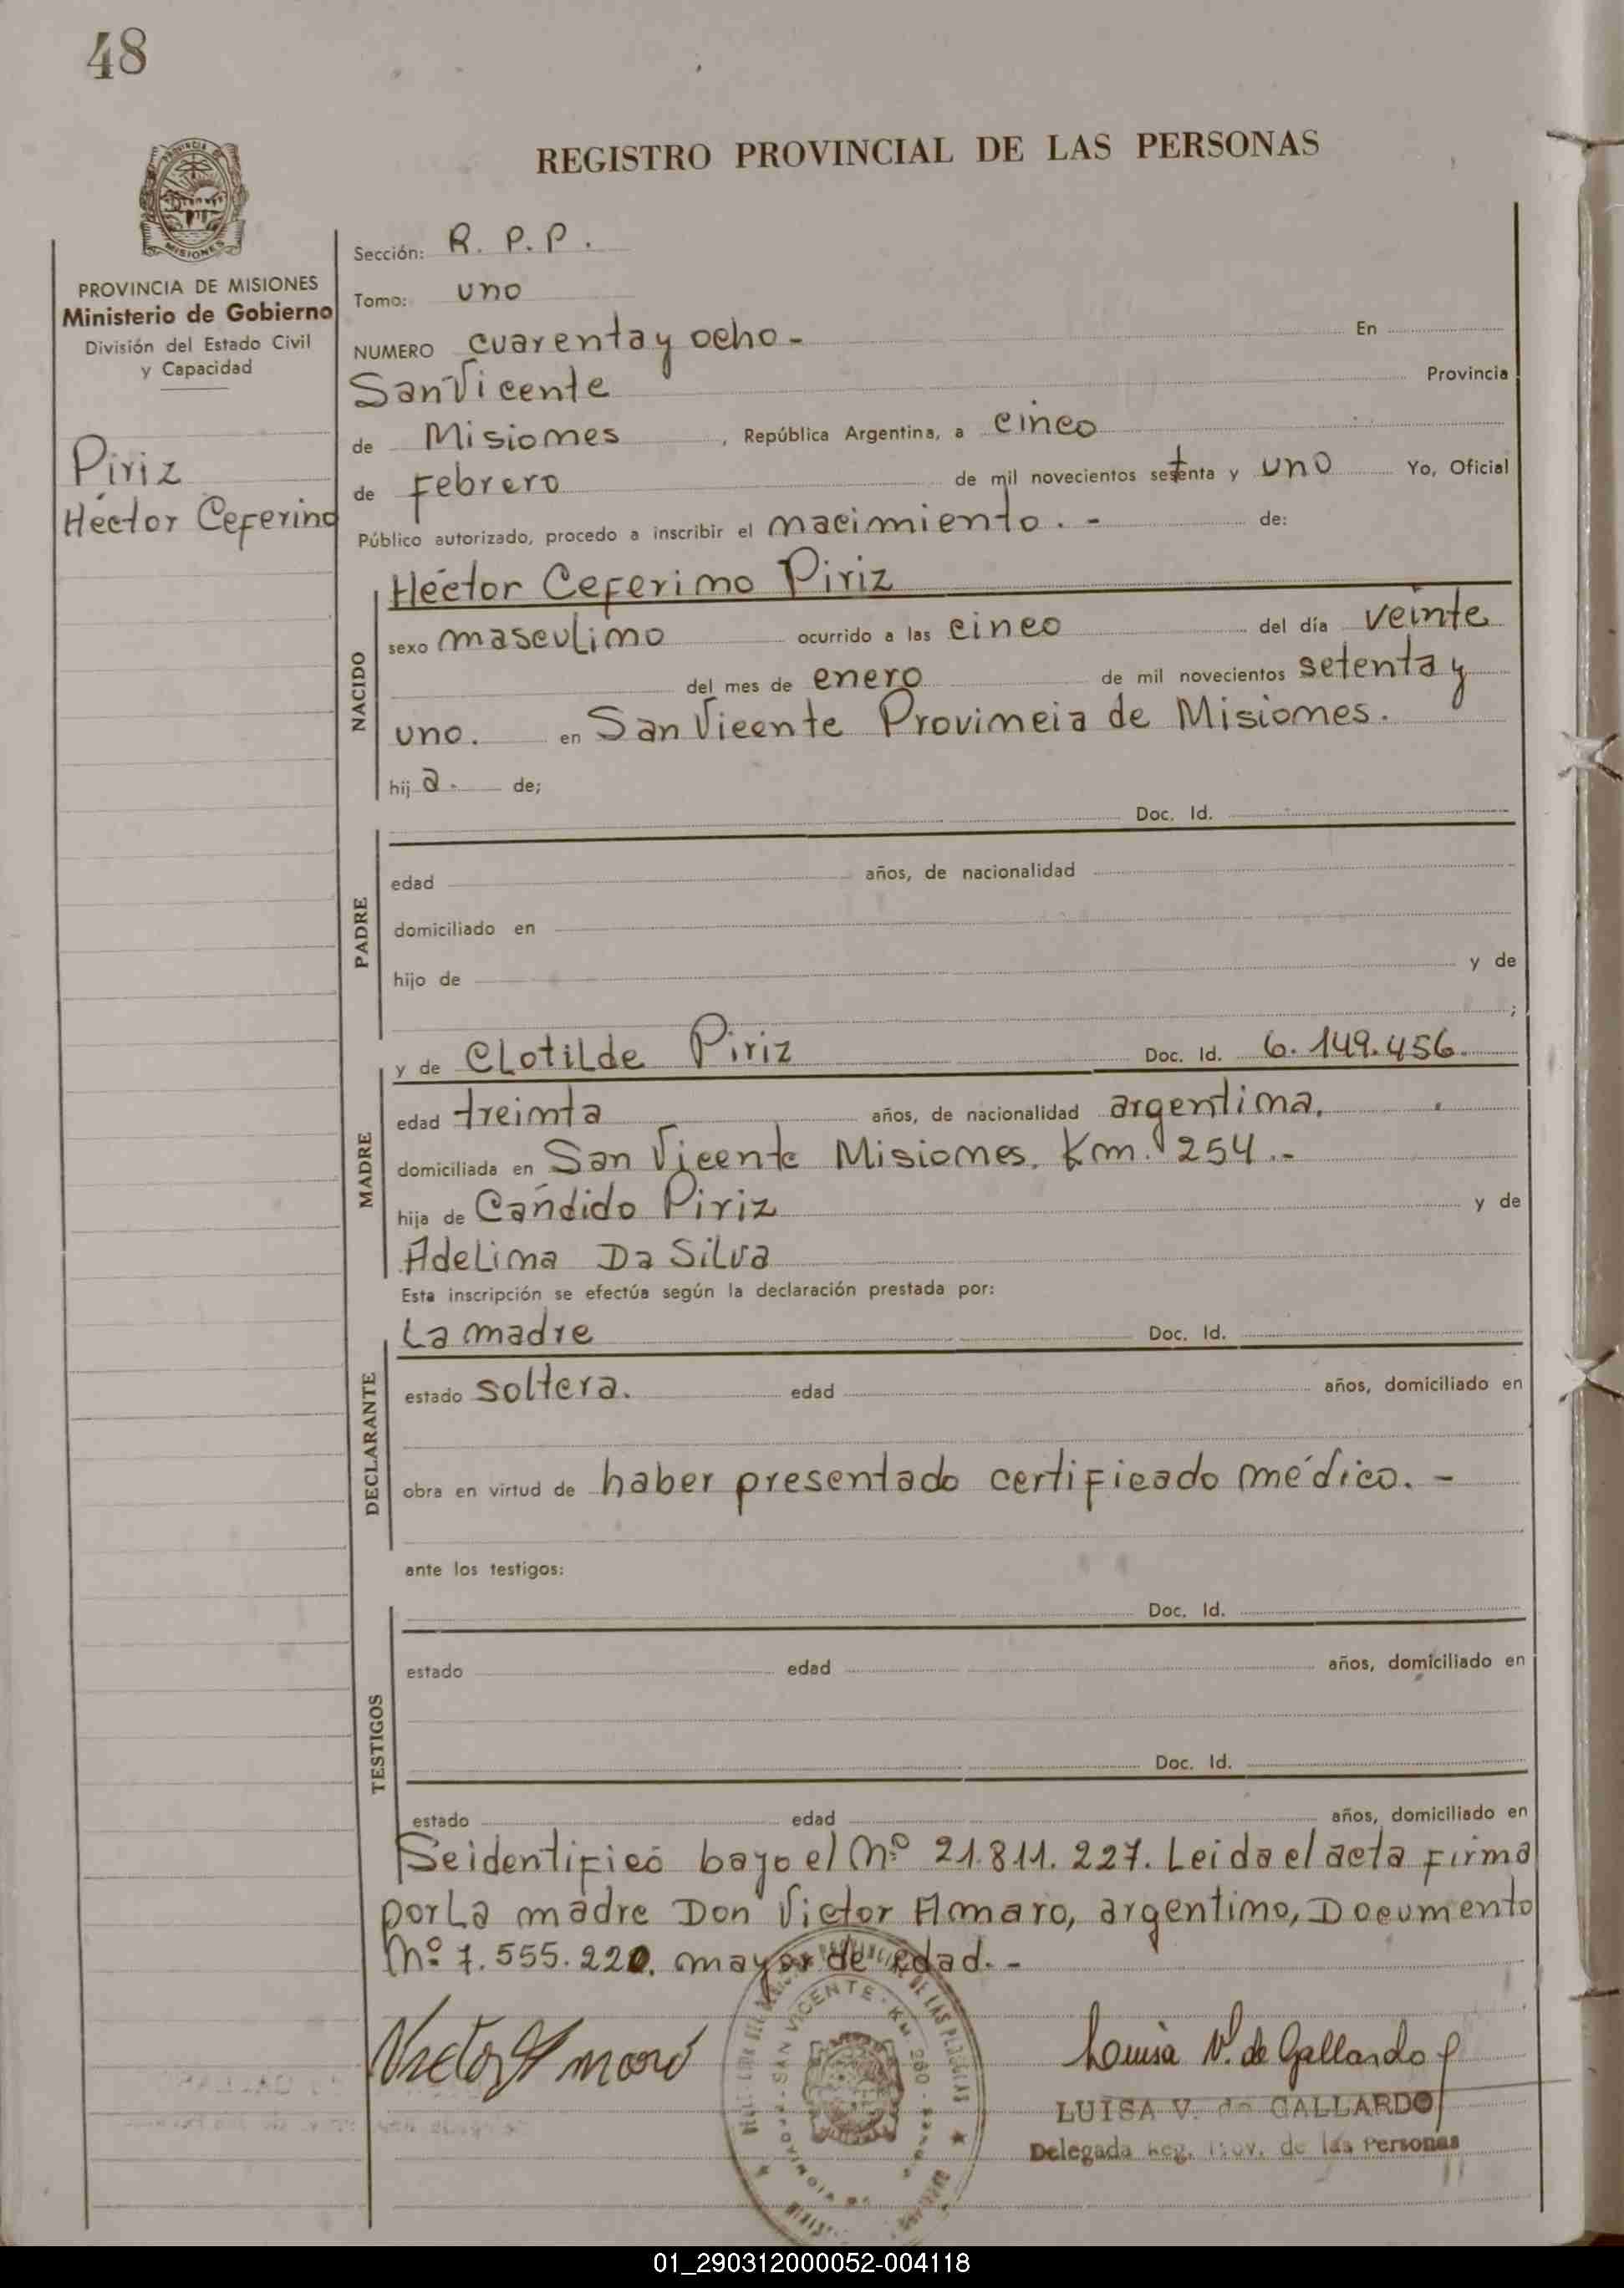 48
REGISTRO PROVINCIAL DE LAS PERSONAS
PROVINCIA DE
MISIONES
PROVINCIA DE MISIONES
Ministerio de Gobierno
División del Estado Civil
y Capacidad
Piriz
Héctor Ceferino
Sección: R. P. P.
Tomo: uno
NUMERO cuarenta y ocho - En
San Vicente Provincia
de Misiones, República Argentina, a cinco
de Febrero de mil novecientos setenta y uno Yo, Oficial
Público autorizado, procedo a inscribir el nacimiento. - de:
NACIDO
Héctor Ceferino Piriz
sexo masculino ocurrido a las cinco del día veinte
del mes de enero de mil novecientos setenta y
uno. en San Vicente Provincia de Misiones.
hij a. de;
PADRE
Doc. Id.
edad años, de nacionalidad
domiciliado en
hijo de y de
;
MADRE
y de Clotilde Piriz Doc. Id. 6.149.456.
edad treinta años, de nacionalidad argentina.
domiciliada en San Vicente Misiones. Km. 254.-
hija de Cándido Piriz y de
Adelina Da Silva
Esta inscripción se efectúa según la declaración prestada por:
DECLARANTE
La madre Doc. Id.
estado soltera. edad años, domiciliado en
obra en virtud de haber presentado certificado médico. -
ante los testigos:
TESTIGOS
Doc. Id.
estado edad años, domiciliado en
Doc. Id.
estado edad años, domiciliado en
Se identificó bajo el Nº 21.811.227. Leida el acta firma
por La madre Don Victor Amaro, argentino, Documento
Nº 7.555.220. mayor de edad. -
Victor Amaro
SAN VICENTE - KM. 260
Louisa V. de Gallardo
LUISA V. de GALLARDO
Delegada Reg. Prov. de las Personas
01_290312000052-004118